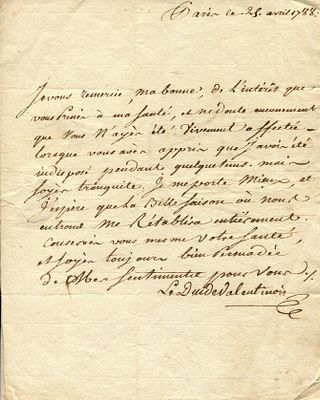 Paris ce 25. avril 1788.
Je vous remercie, ma bonne, de L'intérêt que
vous Prenés à ma Santé, et ne doute aucunement
que Vous N'ayés été Vivement affectée
lorsque vous avés appris que J'avois été
indisposé pendant quelque tems. mais
soyés tranquile. Je me porte Mieux, et
J'espère que La Belle Saison ou nous
entrons Me Rétablira entiérement.
Conservés vous mesme Votre Santé,
et Soyés toujours bien
de Mes Sentimens pour Vous
Le Duc de Valentinois